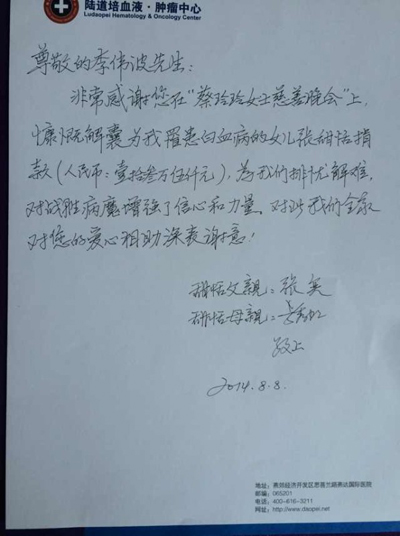 陆道培血液·肿瘤中心
Ludaopei Hematology & Oncology Center
尊敬的李伟波先生：
非常感谢您在“蔡玲玲女士慈善晚会”上，
慷慨解囊为我罹患白血病的女儿张甜恬捐
款（人民币：壹拾叁万伍仟元），为我们排忧解难，
对战胜病魔增强了信心和力量。对此我们全家
对您的爱心相助深表谢意！
甜恬父親：张奂
甜恬母親：
敬上
2014.8.8.
地址：燕郊经济开发区思菩兰路燕达国际医院
邮编：065201
电话：400-616-3211
网址：http://www.daopei.net